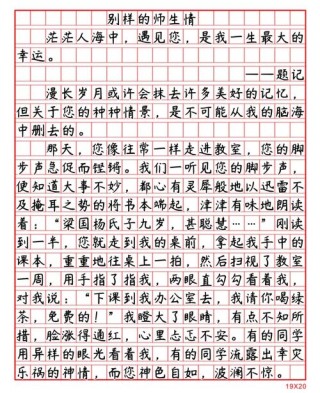 别样的师生情
茫茫人海中，遇见您，是我一生最大的
幸运。
——题记
漫长岁月或许会抹去许多美好的记忆，
但关于您的种种情景，是不可能从我的脑海
中删去的。
那天，您像往常一样走进教室，您的脚
步声急促而铿锵。我们一听见您的脚步声，
便知道大事不妙，都心有灵犀般地以迅雷不
及掩耳之势的将书本端起，津津有味地朗读
着：“梁国杨氏子九岁，甚聪慧……”刚读
到一半，您就走到我的桌前，拿起我手中的
课本，重重地往桌上一拍，然后扫视了教室
一周，用手指了指我，两眼直勾勾看着我，
对我说：“下课到我办公室去，我请你喝绿
茶，免费的！”我瞪大了眼睛，有点不知所
措，脸涨得通红，心里忐忑不安。有的同学
用异样的眼光看着我，有的同学流露出幸灾
乐祸的神情，而您神色自如，波澜不惊。
19X20